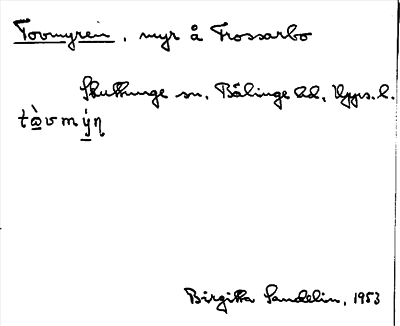 Tovmyren, myr å Frossarbo
Skuttunge sn, Bälinge hd, Upps. l.
tòvmýn
Birgitta Sandelin, 1953